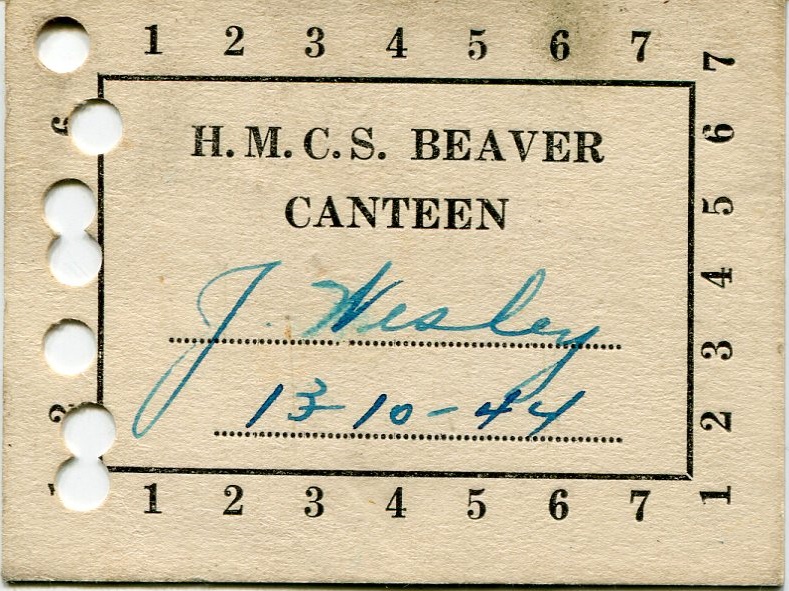 1 2 3 4 5 6 7
7
6
5
4
3
2
1
H. M. C. S. BEAVER
CANTEEN
J. Wesley
13-10-44
2
1 2 3 4 5 6 7